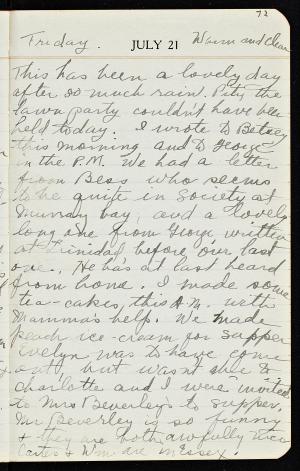 72
Friday. JULY 21 Warm and Clear
This has been a lovely day
after so much rain. Pity the
lawn party couldn't have been
held today. I wrote to Betsey
this morning and to George
in the P.M. We had a letter
from Bess who seems
to be quite in society at
Murray bay, and a lovely
long one from George written
at Trinidad before our last
one. He has at last heard
from home. I made some
tea-cakes, this A.M. with
Mamma's help. We made
peach ice-cream for supper
Evelyn was to have come
out, but wasn't able to
Charlotte and I were invited
to Mrs Beverley's to supper.
Mr Beverley is so funny
& they are both awfully nice
Carter & Wm are in Essex.